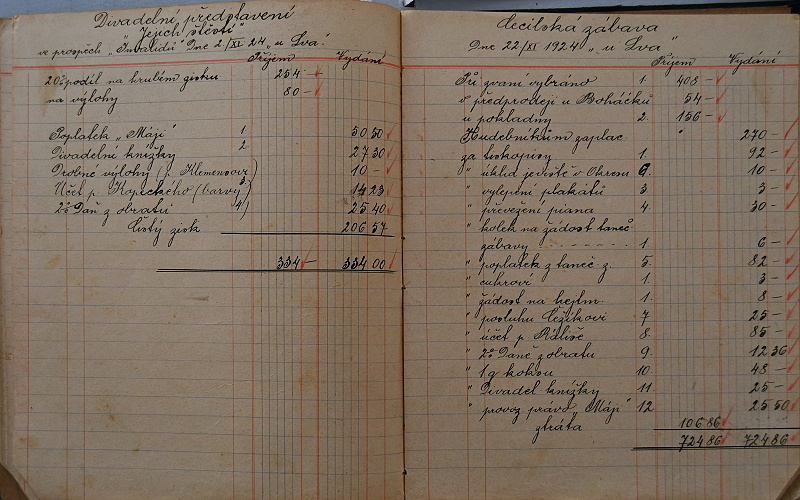 Divadelní představení
"Jejich štěstí"
ve prospěch "Invalidů" Dne 2/XI 24 "u Lva".
Příjem Vydání
20% podíl na hrubém zisku 254 –
na výlohy 80 –
Poplatek "Máji" 1. 30 50
Divadelní knížky 2. 27 30
Drobné výlohy (p. Klemensovi) 10 –
Účet p. Kopeckého (barvy) 3. 14 23
2% Daň z obratu 4) 25 40
Čistý zisk 206 57
334 – 334 00
Cecilská zábava
Dne 22/XI 1924 "u Lva"
Příjem Vydání
Při zvaní vybráno 1. 408 –
v předprodeji u Boháčků 54 –
u pokladny 2. 156 –
Hudebníkům zaplac 270 –
za tiskopisy 1. 92 –
" úklid jeviště v Okresu 2. 10 –
" vylepení plakátů 3 3 –
" převežení piana 4. 30 –
" kolek na žádost taneč
zábavy 1. 6 –
" poplatek z taneč z. 5. 82 –
" cukroví 1. 3 –
" žádost na hejtm. 1. 8 –
" posluhu 7 25 –
" účet p. 8. 85 –
" 2% Daně z obratu 9. 12 36
" 1 q koksu 10. 48 –
" Divadel knížky 11 25 –
" provoz právo "Máji" 12. 25 50
ztráta 106 86
724 86 724 86